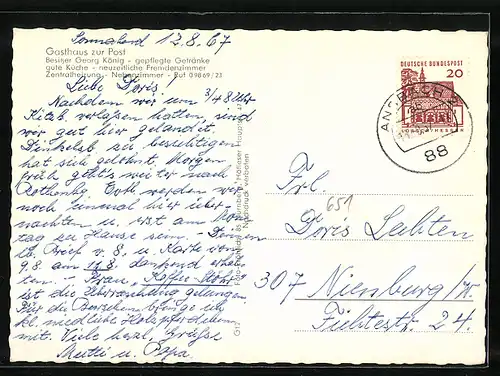 Sonnabend 12.8.67
Gasthaus zur Post
Besitzer Georg König - gepflegte Getränke
gute Küche - neuzeitliche Fremdenzimmer
Zentralheizung - Nebenzimmer - Ruf 09869/23
Liebe Doris!
Nachdem wir um 3/4 8 Uhr
Kitzb. verlassen hatten, sind
wir gut hier gelandet.
Dinkelsb. zu besichtigen
hat sich gelohnt. Morgen
früh geht's weiter nach
Rothenbg. Dort werden wir
noch einmal hier über-
nachten u. erst am Mon
tag zu Hause sein. - Deinen
lb. Brief v. 8. u. Karte vom
9.8. am 11.8. dankend erhal-
ten. Frau "Kaffee-Mohr"
ist die Überraschung gelungen.
Für die Bärschen bringe ich
kl. niedliche Holzpferdchen
mit. Viele herzl. Grüße
Mutti u. Papa.
Nachdruck verboten
DEUTSCHE BUNDESPOST
20
LORSCH/HESSEN
ANSBACH
88
Frl.
651
Doris Lechten
307 Nienburg/W.
Fichtestr. 24.